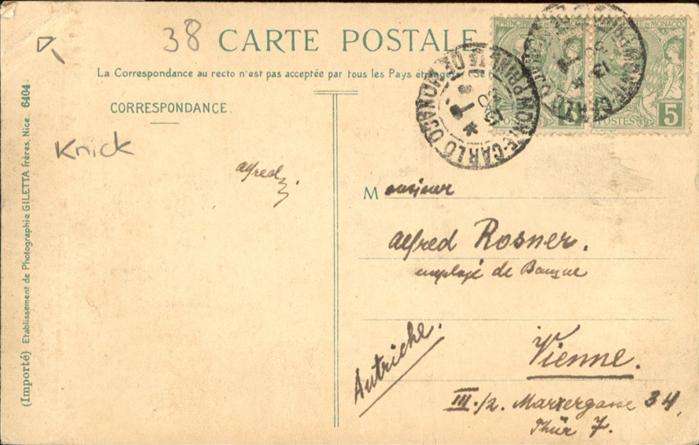 38
CARTE POSTALE
La Correspondance au recto n'est pas acceptée par tous les Pays étrang
CORRESPONDANCE
Knick
alfred
(Importé) Etablissement de Photographie GILETTA frères, Nice. 6404
MONTE-CARLO
PRINCIPAUTÉ DE MONACO
5
Monsieur
Alfred Rosner.
employé de Banque
Autriche.
Vienne.
III./2. Marxergasse 34,
Thür 7.